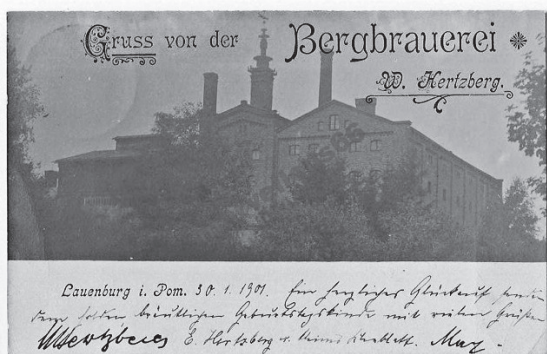 Gruss von der Bergbrauerei
W. Hertzberg.
Lauenburg i. Pom. 30. 1. 1901. Ein herzliches Glückauf senden
bräutlichen Geburtstagskinde mit vielen Grüßen
WHertzberg E. Hertzberg u. May.